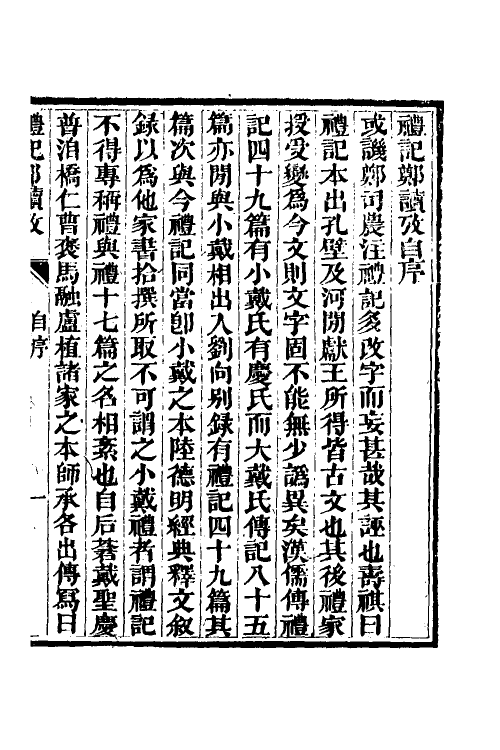 禮記鄭讀攷自序
或譏鄭司農注禮記多改字而妄甚哉其誣也壽祺曰
禮記本出孔壁及河閒獻王所得皆古文也其後禮家
授受變為今文則文字固不能無少譌異矣漢儒傳禮
記四十九篇有小戴氏有慶氏而大戴氏傳記八十五
篇亦閒與小戴相出入劉向別錄有禮記四十九篇其
篇次與今禮記同當卽小戴之本陸德明經典釋文敘
錄以為他家書拾撰所取不可謂之小戴禮者謂禮記
不得專稱禮與禮十七篇之名相紊也自后蒼戴聖慶
普洎橋仁曹褒馬融盧植諸家之本師承各出傳寫日
禮記鄭讀攷
自序
一